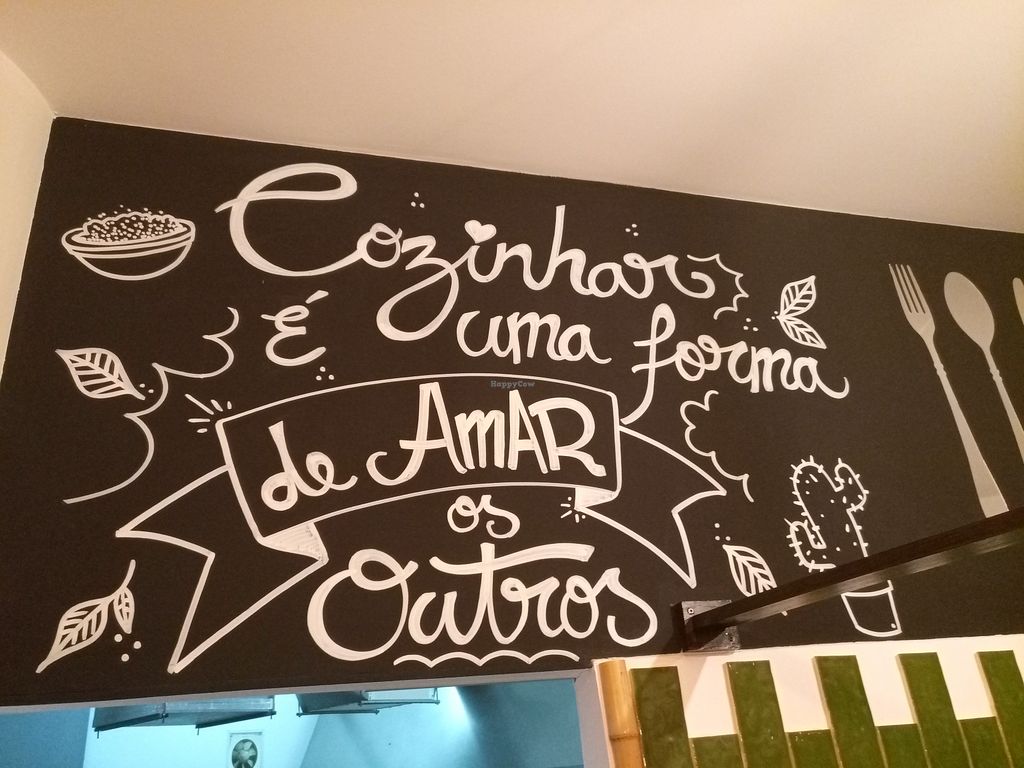 Cozinhar
é uma forma
de AMAR
os
Outros
HappyCow